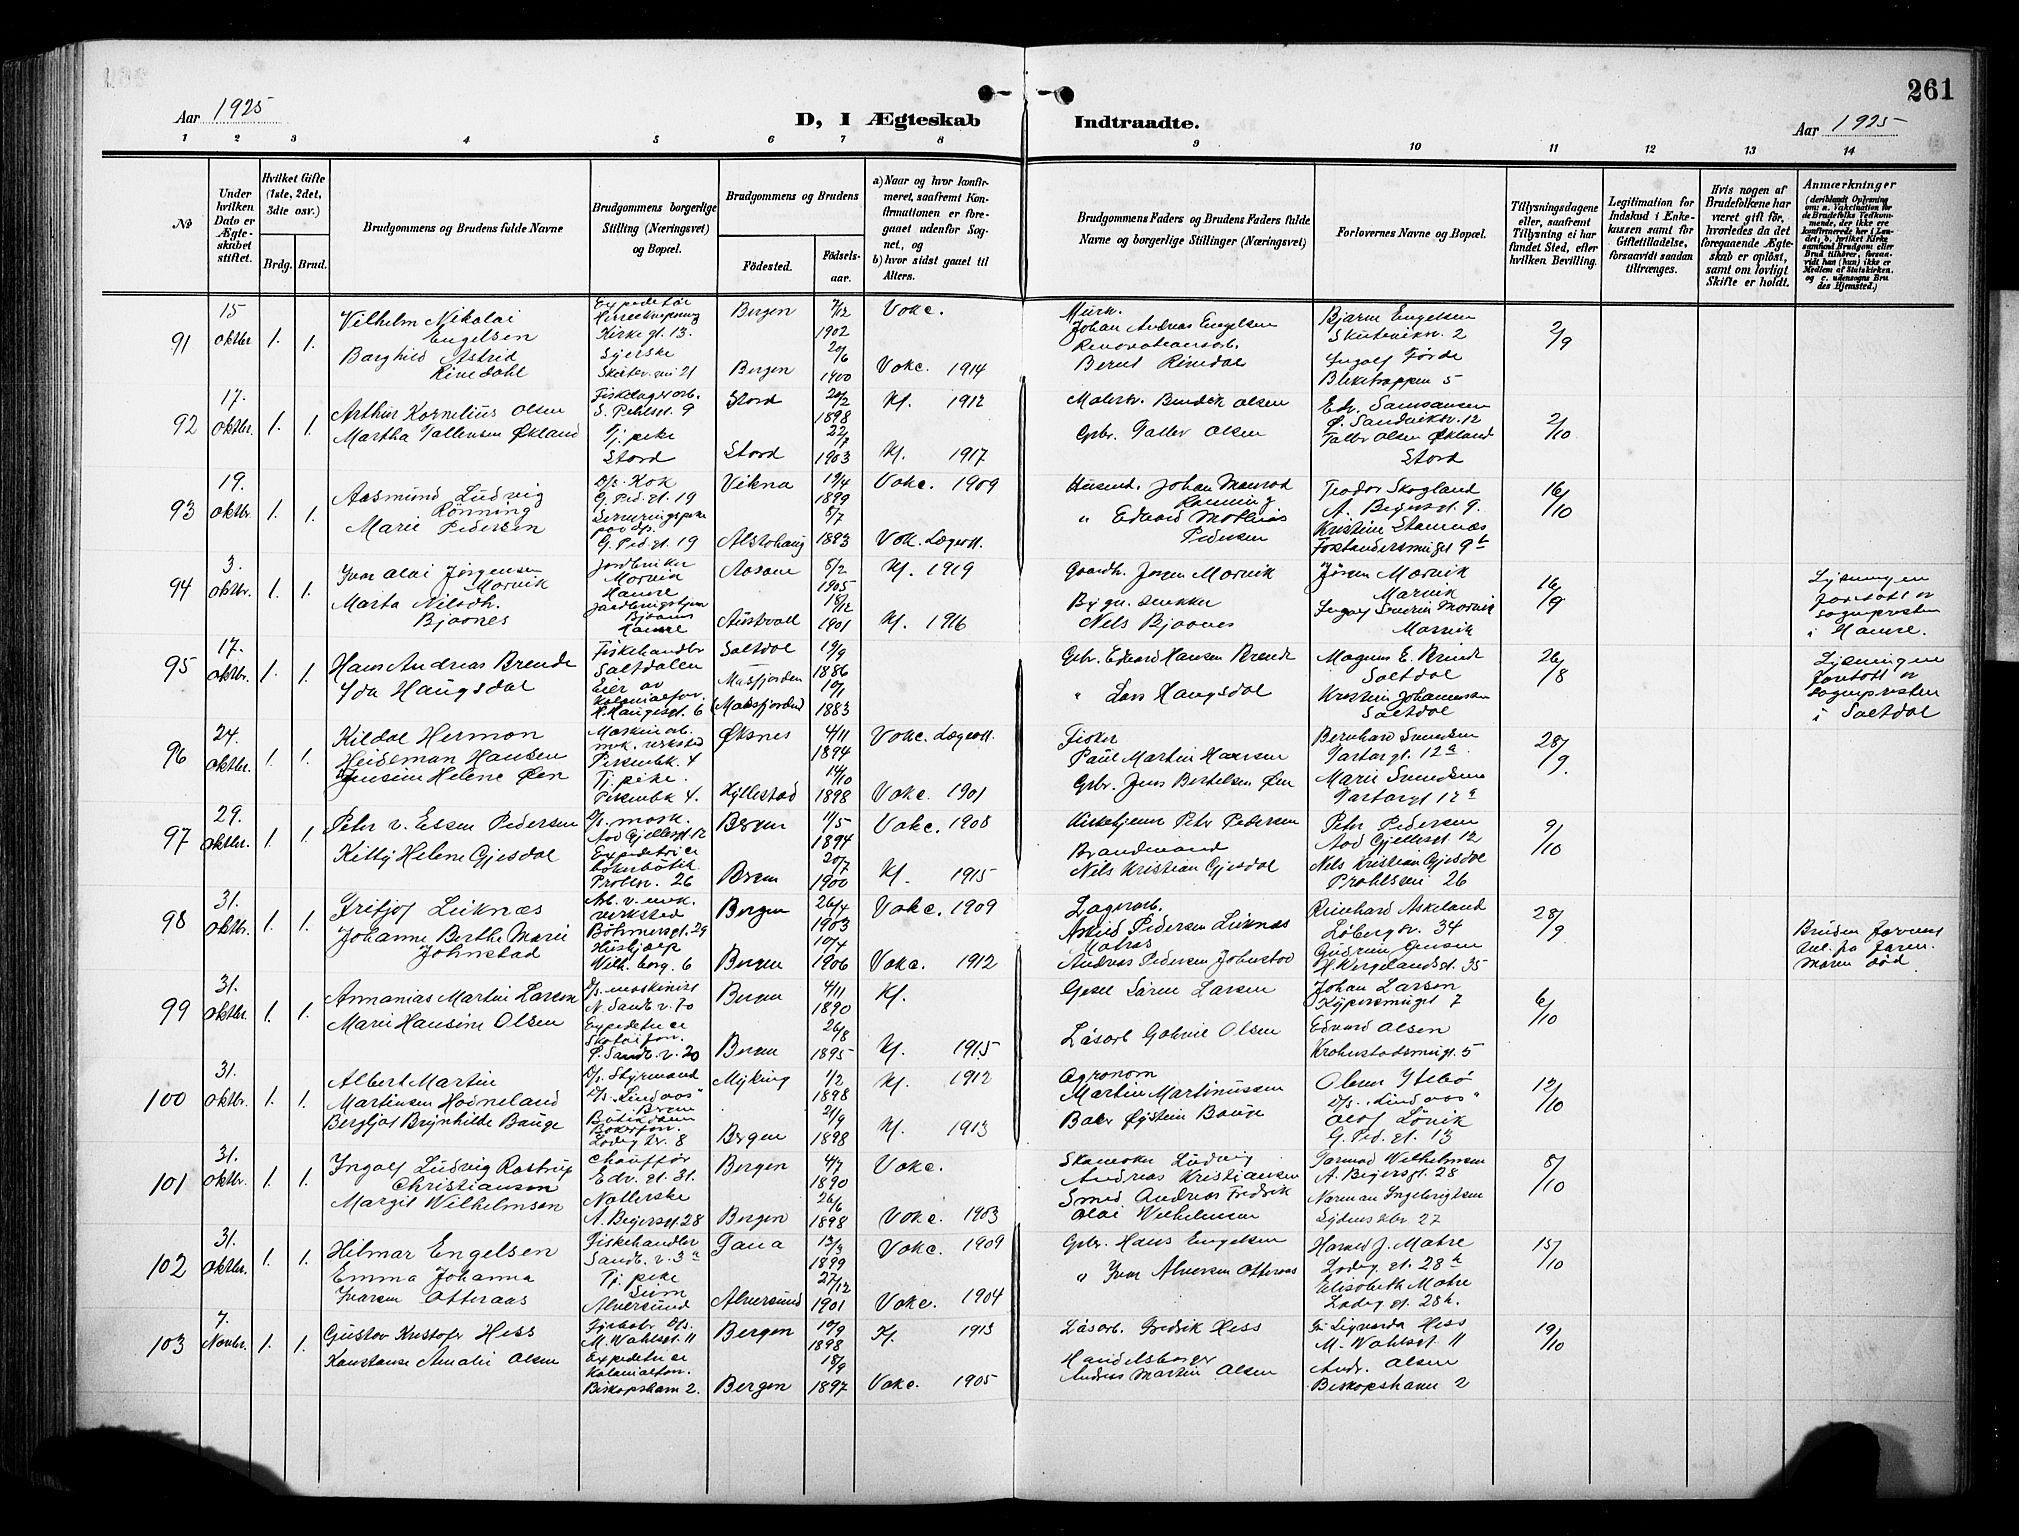 261
Aar 1925
D, I Ægteskab Indtraadte.
Aar 1925
1 2 3 4 5 6 7 8 9 10 11 12 13 14
No
Under hvilken Dato er Ægteskabet stiftet.
Hvilket Gifte (1ste, 2det, 3die osv.)
Brdg. Brud.
Brudgommens og Brudens fulde Navne
Brudgommens borgerlige Stilling (Næringsvei) og Bopæl.
Brudgommens og Brudens
Fødested.
Fødselsaar.
a) Naar og hvor konfirmeret, saafremt Konfirmationen er foregaaet udenfor Sognet, og
b) hvor sidst gaaet til Alters.
Brudgommens Faders og Brudens Faders fulde Navne og borgerlige Stillinger (Næringsvei)
Forlovernes Navne og Bopæl.
Tillysningsdagene eller, saafremt Tillysning ei har fundet Sted, efter hvilken Bevilling.
Legitimation for Indskud i Enkekassen samt for Giftetilladelse, forsaavidt saadan tiltrænges.
Hvis nogen af Brudefolkene har været gift før, hvorledes da det foregaaende Ægteskab er opløst, samt om lovligt Skifte er holdt.
Anmærkninger
91
15 oktbr
1. 1.
Vilhelm Nikolai Engelsen
Borghild Astrid Rivedahl
Kirkegt. 13.
Syerske
Bergen
7/12 1902
Bergen
20/6 1900
Vokc.
Vokc. 1914
Johan Andreas Engelsen
Bernt Rivedal
Bjarne Engelsen
Skuteviksv. 2
Ingolf Førde
Blekitrappen 5
2/9
92
17. oktbr.
1. 1.
Arthur Kornelius Olsen
Martha Tallevsen Økland
Fiskelagerarb.
Tj. pike
Stord
Stord
1898
Stord
1903
Kf. 1912
Kf. 1917
Malerm. Bendik Olsen
Gbr. Tallev Olsen
Edv. Samsonsen
Ø. Sandviksv. 12
Tallev Olsen Økland
Stord
2/10
93
19. oktbr
1. 1.
Aasmund Ludvig Rønning
Marie Pedersen
D/s. Kok
G. Ped. gt. 19
Serveringspike
G. Ped. gt. 19
Vikna
19/4 1899
Alstahaug
5/7 1893
Vokc. 1909
Vokc. Lægeatt.
Husmd. Johan Rønning
" Edvard Mathias Pedersen
Teodor Skogland
A. Beyersgt. 9.
Kristine Stamnæs
Forstandersmuget 9b
16/10
94
3. oktbr.
1. 1.
Ivar Olai Jørgensen Morvik
Marta Nilsdh. Bjornes
Jordbruker
Morvik
Hamre
Aasane
5/2 1905
Austvoll
18/12 1901
Kf. 1919
Kf. 1916
Gaardb. Jørgen Morvik
Nils Bjornes
Jørgen Morvik
Morvik
Ingolf Severin Morvik
Morvik
16/9
Lysningen foretatt av sognepresten i Hamre.
95
17. oktbr.
1. 1.
Hans Andreas Brende
Ida Haugsdal
Fiskehandler
Saltdalen
Eier av Kolonialfor.
H. Haugesgt. 6
Saltdal
19/9 1886
Masfjorden
(Masfjorden)
10/1 1883
Gbr. Edvard Hansen Brende
" Lars Haugsdal
Magnus E. Brende
Saltdal
Kristine Johannessen
Saltdal
26/8
Lysningen foretatt av sognepresten i Saltdal
96
24. oktbr.
1. 1.
Kildal Hermon Heideman Hansen
Jensine Helene Øen
Maskinarb. mek. verksted
Tj. pike.
Øksnes
4/11 1894
Hyllestad
14/10 1898
Vokc. Lægeatt.
Vokc. 1901
Fisker
Paul Martin Hansen
Gbr. Jens Bertelsen Øen
Bernhard Svendsen
Tartargt. 12a
Marie Svendsen
Tartargt 12a
28/9.
97
29. oktbr.
1. 1.
Peter v. Essen Pedersen
Kitty Helene Gjesdal
D/s. mask.
Aad Gjellesgt 12
Expeditrice
Bergen
11/5 1894
Bergen
20/7 1900
Vokc. 1908
Kf. 1915
Kirketjener Peter Pedersen
Brandmand
Nils Kristian Gjesdal
Peter Pedersen
Aad Gjellesgt 12
Nils Kristian Gjesdal
26
9/10
98
31. oktbr.
1. 1.
Fritjof Liknæs
Johanne Berthe Marie Johnstad
Arb. v. mek. verksted
Böhmersgt. 29
Hushjælp
Bergen
26/4 1903
Bergen
10/4 1906
Vokc. 1909
Vokc. 1912
Lagerarb.
Pedersen Liknæs
Matros
Andreas Pedersen Johnstad
Reinhard Askeland
Løbergsv. 34
Gudrun Jensen
H. Wergelandsgt. 35
28/9
99
31. oktbr.
1. 1.
Annanias Martin Larsen
Marie Hansine Olsen
D/s. maskinist
N. Sandv. v. 70
Expeditrice
Bergen
4/11 1890
Bergen
26/8 1895
Kf.
Kf. 1915
Søren Larsen
Løsarb. Gabriel Olsen
Johan Larsen
Kypersmuget 7
Edvard Olsen
Krohnstadsmuget. 5
6/10
100
31. oktbr.
1. 1.
Albert Martin Martinsen Hodneland
Bergljot Brynhilde Bauge
D/s. Styrmand
D/s. "Lindaas"
Bergen
Myking
1/2 1898
Bergen
21/9 1898
Kf. 1912
Kf. 1913
Agronom
Martin Martinussen
Baker Øystein Bauge
D/s. "Lindaas"
Olaf Lønvik
G. Ped. gt. 13
12/10
101
31. oktbr.
1. 1.
Ingolf Ludvig Rostrup Christiansen
Margit Wilhelmsen
Chauffør
Edv. gt. 31.
Natlerske
A. Beyersgt. 28
Bergen
4/7 1890
Bergen
26/6 1898
Vokc.
Vokc. 1903
Skomaker Ludvig Andreas Kristiansen
Smed Andreas Fredrik Olai Wilhelmsen
Tormod Wilhelmsen
A. Beyersgt. 28
Norman Ingebrigtsen
27
5/10
102
31. oktbr.
1. 1.
Hilmar Engelsen
Emma Johanna Ivarsen Otteraas
Fiskehandler
Sandv. v. 3a
Tj. pike
Alversund
Tana
13/3 1899
Alversund
27/12 1901
Vokc. 1909
Vokc. 1904
Gbr. Hans Engelsen
" Ivar Alversen Otteraas
Harald J. Matre
Lodeg. gt. 28b
Elisabeth Matre
Lodeg gt. 28b.
15/10
103
7. Novbr.
1. 1.
Gustav Kristofer Hess
Konstanse Amalie Olsen
M. Wahlsgt. 11
Expeditrice
Kolonialfon.
Biskopshavn 2.
Bergen
10/9 1898
Bergen
18/9 1897
Kf. 1913
Vokc. 1905
Løsarb. Fredrik Hess
Handelsborger
Andreas Martin Olsen
Fr. Sigvarda Hess
M. Wahlsgt 11
Andr. Olsen
Biskopshavn 2
19/10